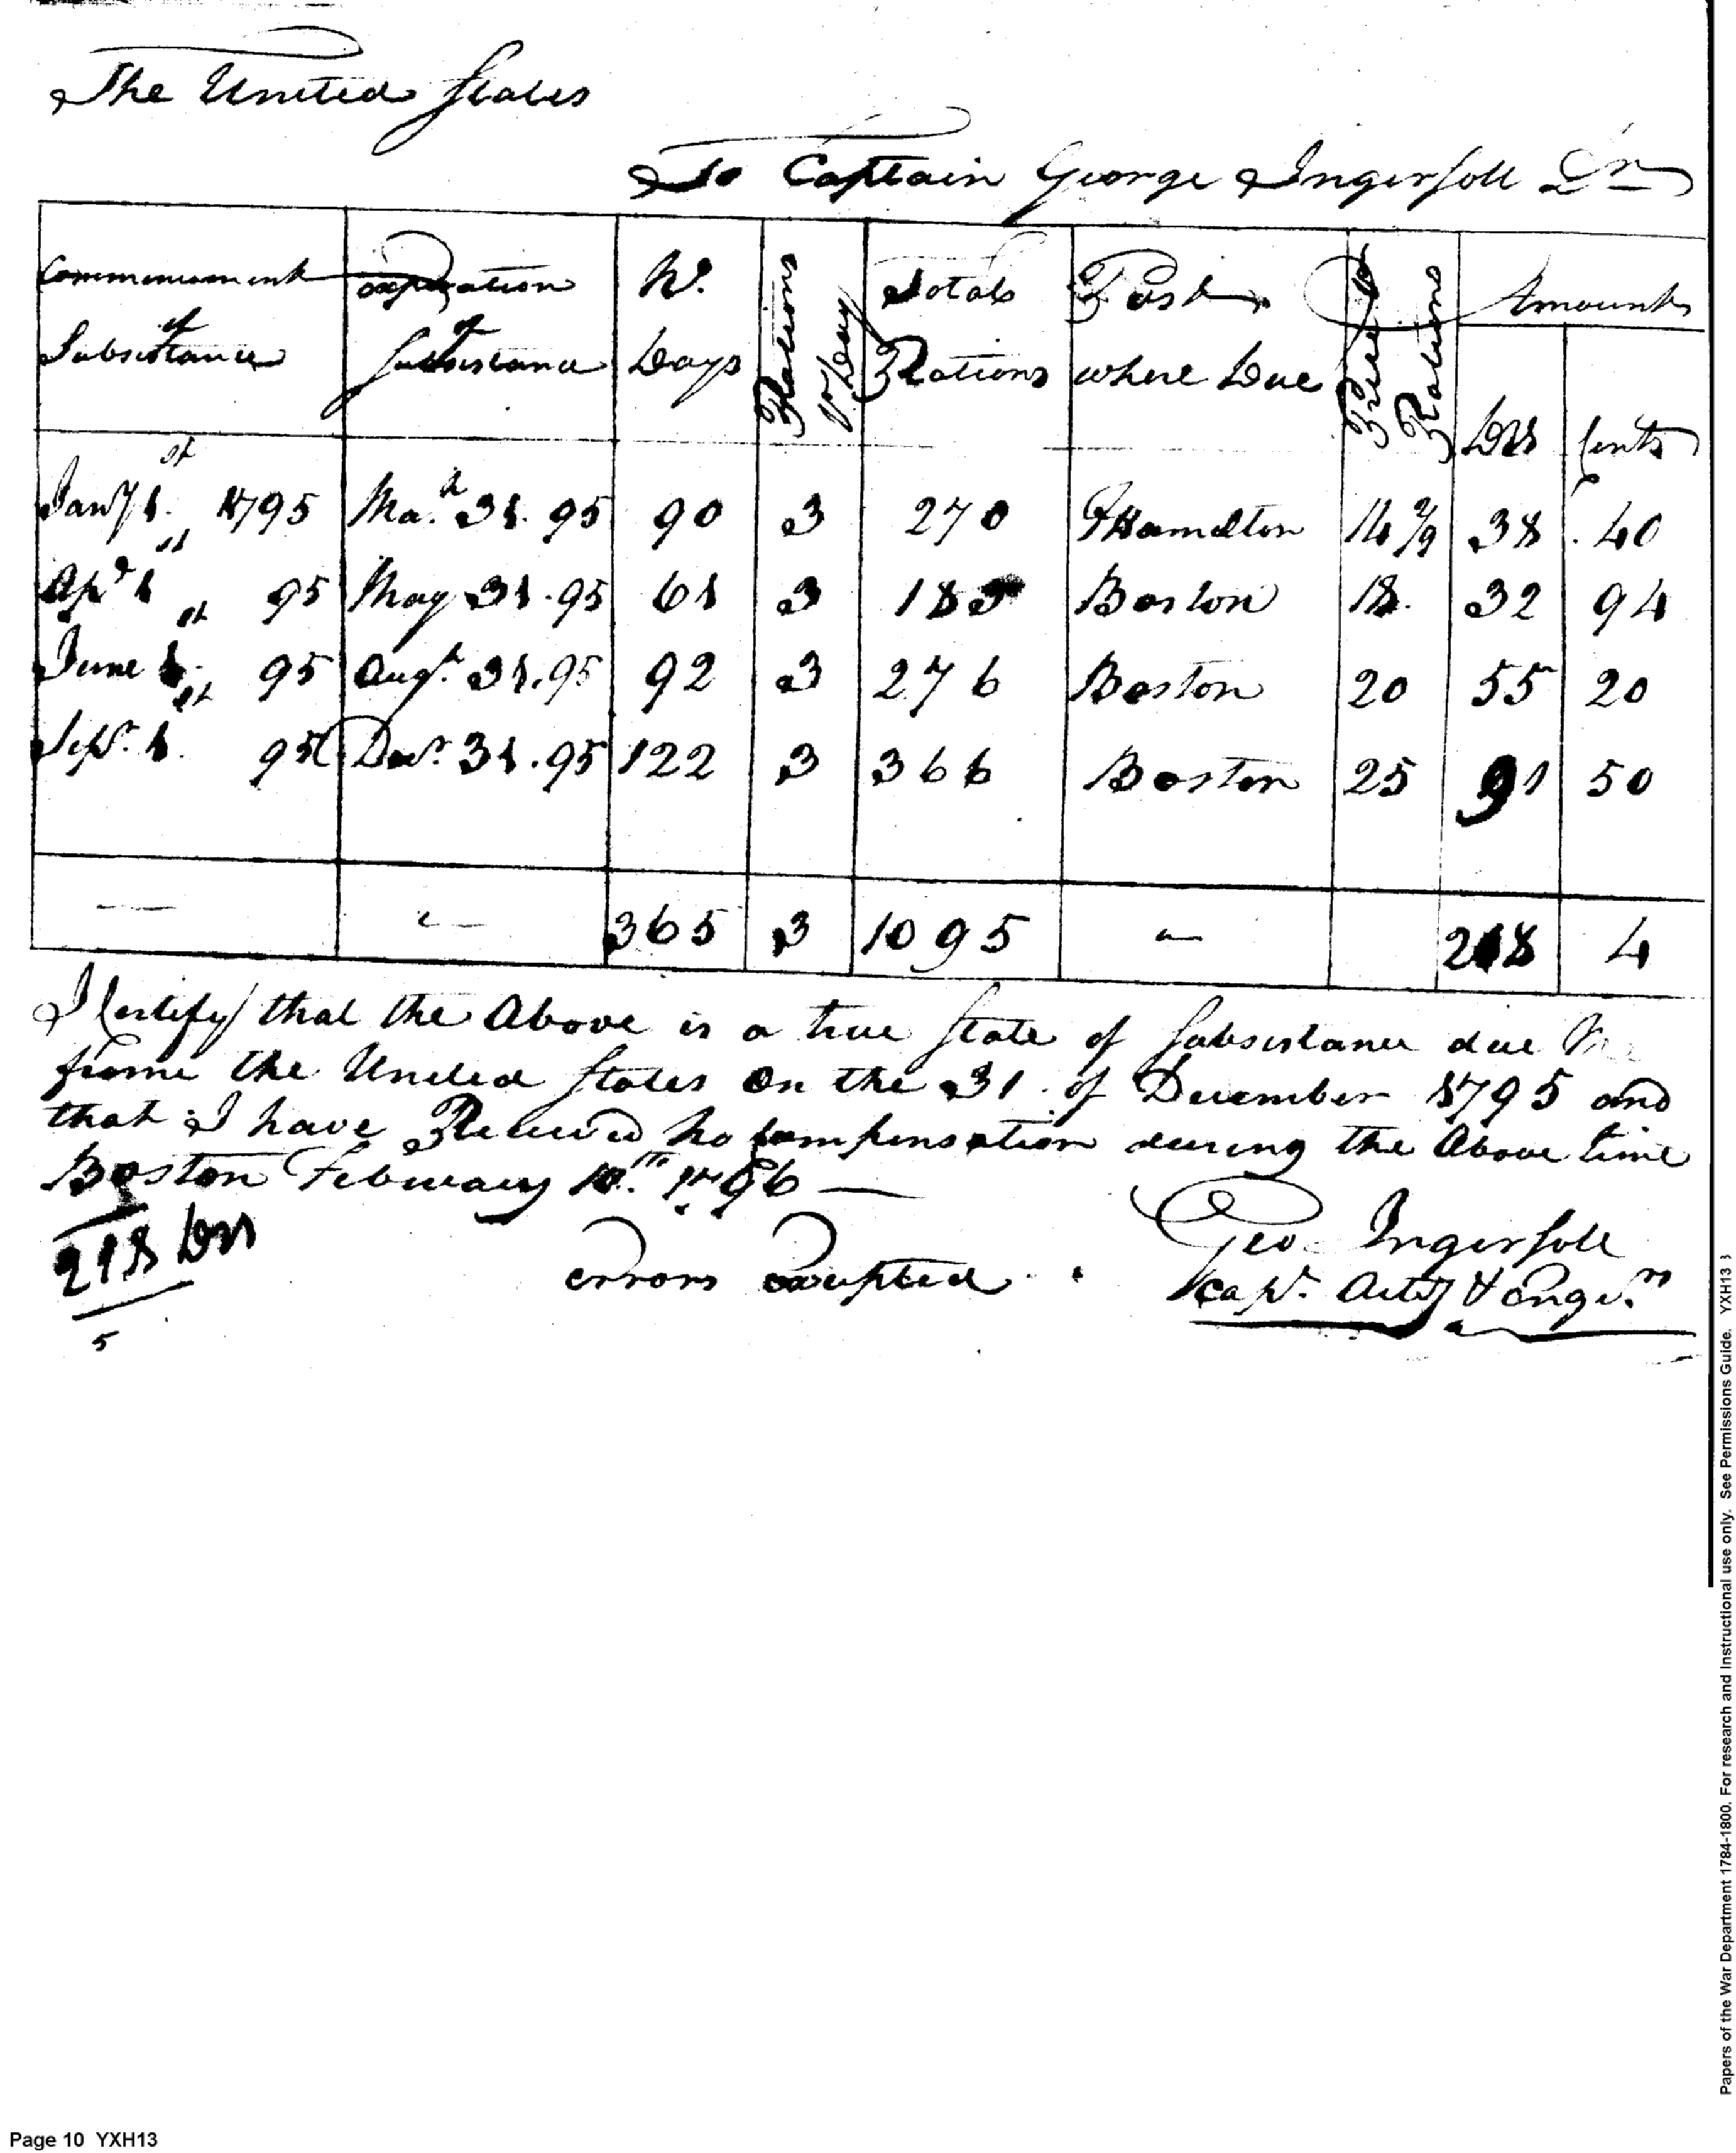 The United States
To Captain George Ingersoll Dr
Commencement of Subsistance | expiration of Subsistance | No. Days | Rations pr Day | Totals Rations | Post where Due | Price of Rations | Amount Dlls | Cents
Jany 1st. 1795 | Mah. 31. 95 | 90 | 3 | 270 | FHamelton | 14 2/9 | 38 | .40
Apl 1st 95 | May 31. 95 | 61 | 3 | 183 | Boston | 18. | 32 | 94
June 1st. 95 | Augt. 31. 95 | 92 | 3 | 276 | Boston | 20 | 55 | 20
Sepr. 1st. 95 | Decr. 31. 95 | 122 | 3 | 366 | Boston | 25 | 91 | 50
— | — | 365 | 3 | 1095 | — | 218 | 4
I Certify that the Above is a true State of Subsistance due Me
frome the United States on the 31. of December 1795 and
that I have Received no Compensation during the Above time
Boston February 10th. 1796 —
218 Dlls
5
errors excepted.
Geo Ingersoll
Capt. Arty & Engrs.
Papers of the War Department 1784-1800. For research and Instructional use only. See Permissions Guide. YXH13
Page 10 YXH13